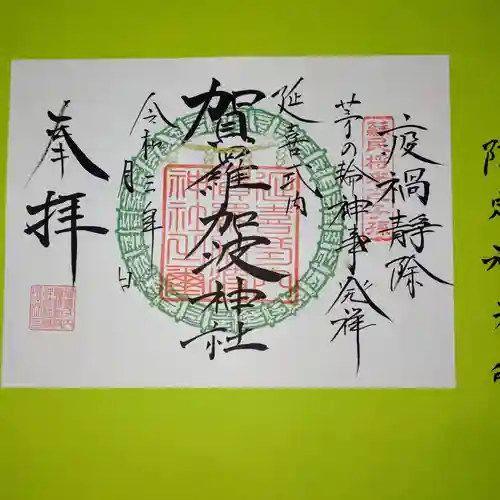 疫禍静除
茅の輪神事発祥
蘇民将来子孫
延喜式内
賀羅加波神社
令和三年
月
日
奉拝